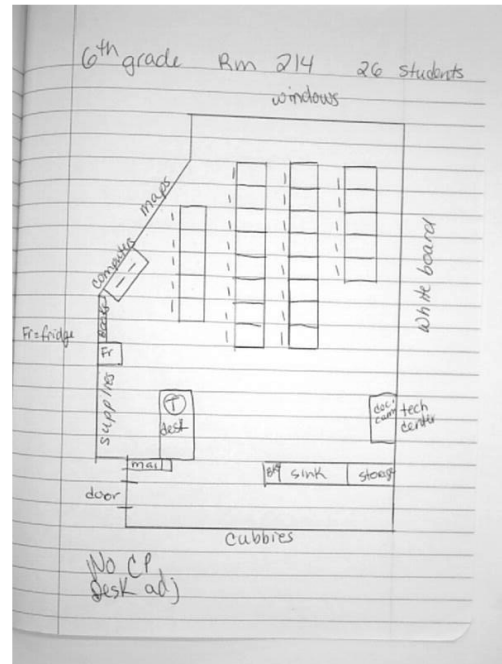 6th grade Rm 214 26 students
windows
maps
computers
White board
books
Fr=fridge
Fr
supplies
T
desk
doc.
cam
tech
center
mail
sink
storage
door
cubbies
No CP
Desk adj